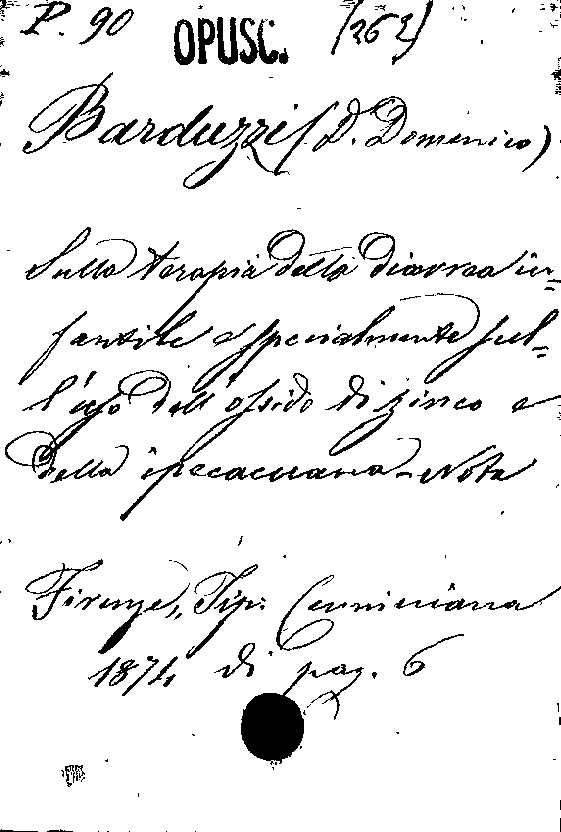 P. 90 OPUSC. (262)
Barduzzi (D. Domenico)
Sulla terapia della diarrea in=
fantile e specialmente sul=
l'uso dell'ossido di zinco e
della ipecacuana - Nota
Firenze, Tip. Cenniniana
1874 di pag. 6